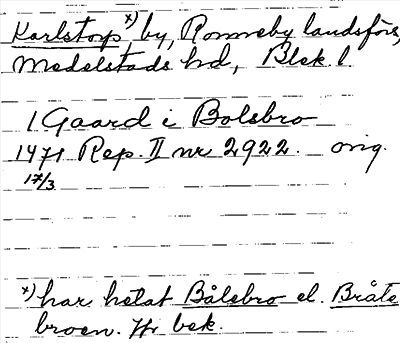 Karlstorp x), by, Ronneby landsförs,
Medelstads hd, Blek. l.
1 Gaard i Bolsbro
1471 Rep. II nr 2922. orig.
17/3
x) har hetat Bålsbro el. Bråte
broen.
bek.